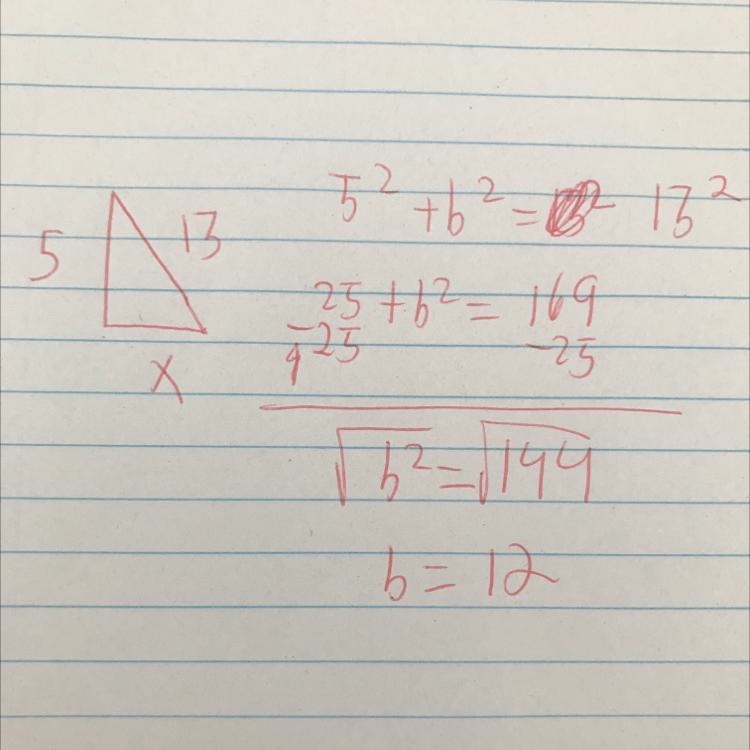 5 13
x
5² + b² = 13²
25 + b² = 169
-25 -25
√b² = √144
b = 12